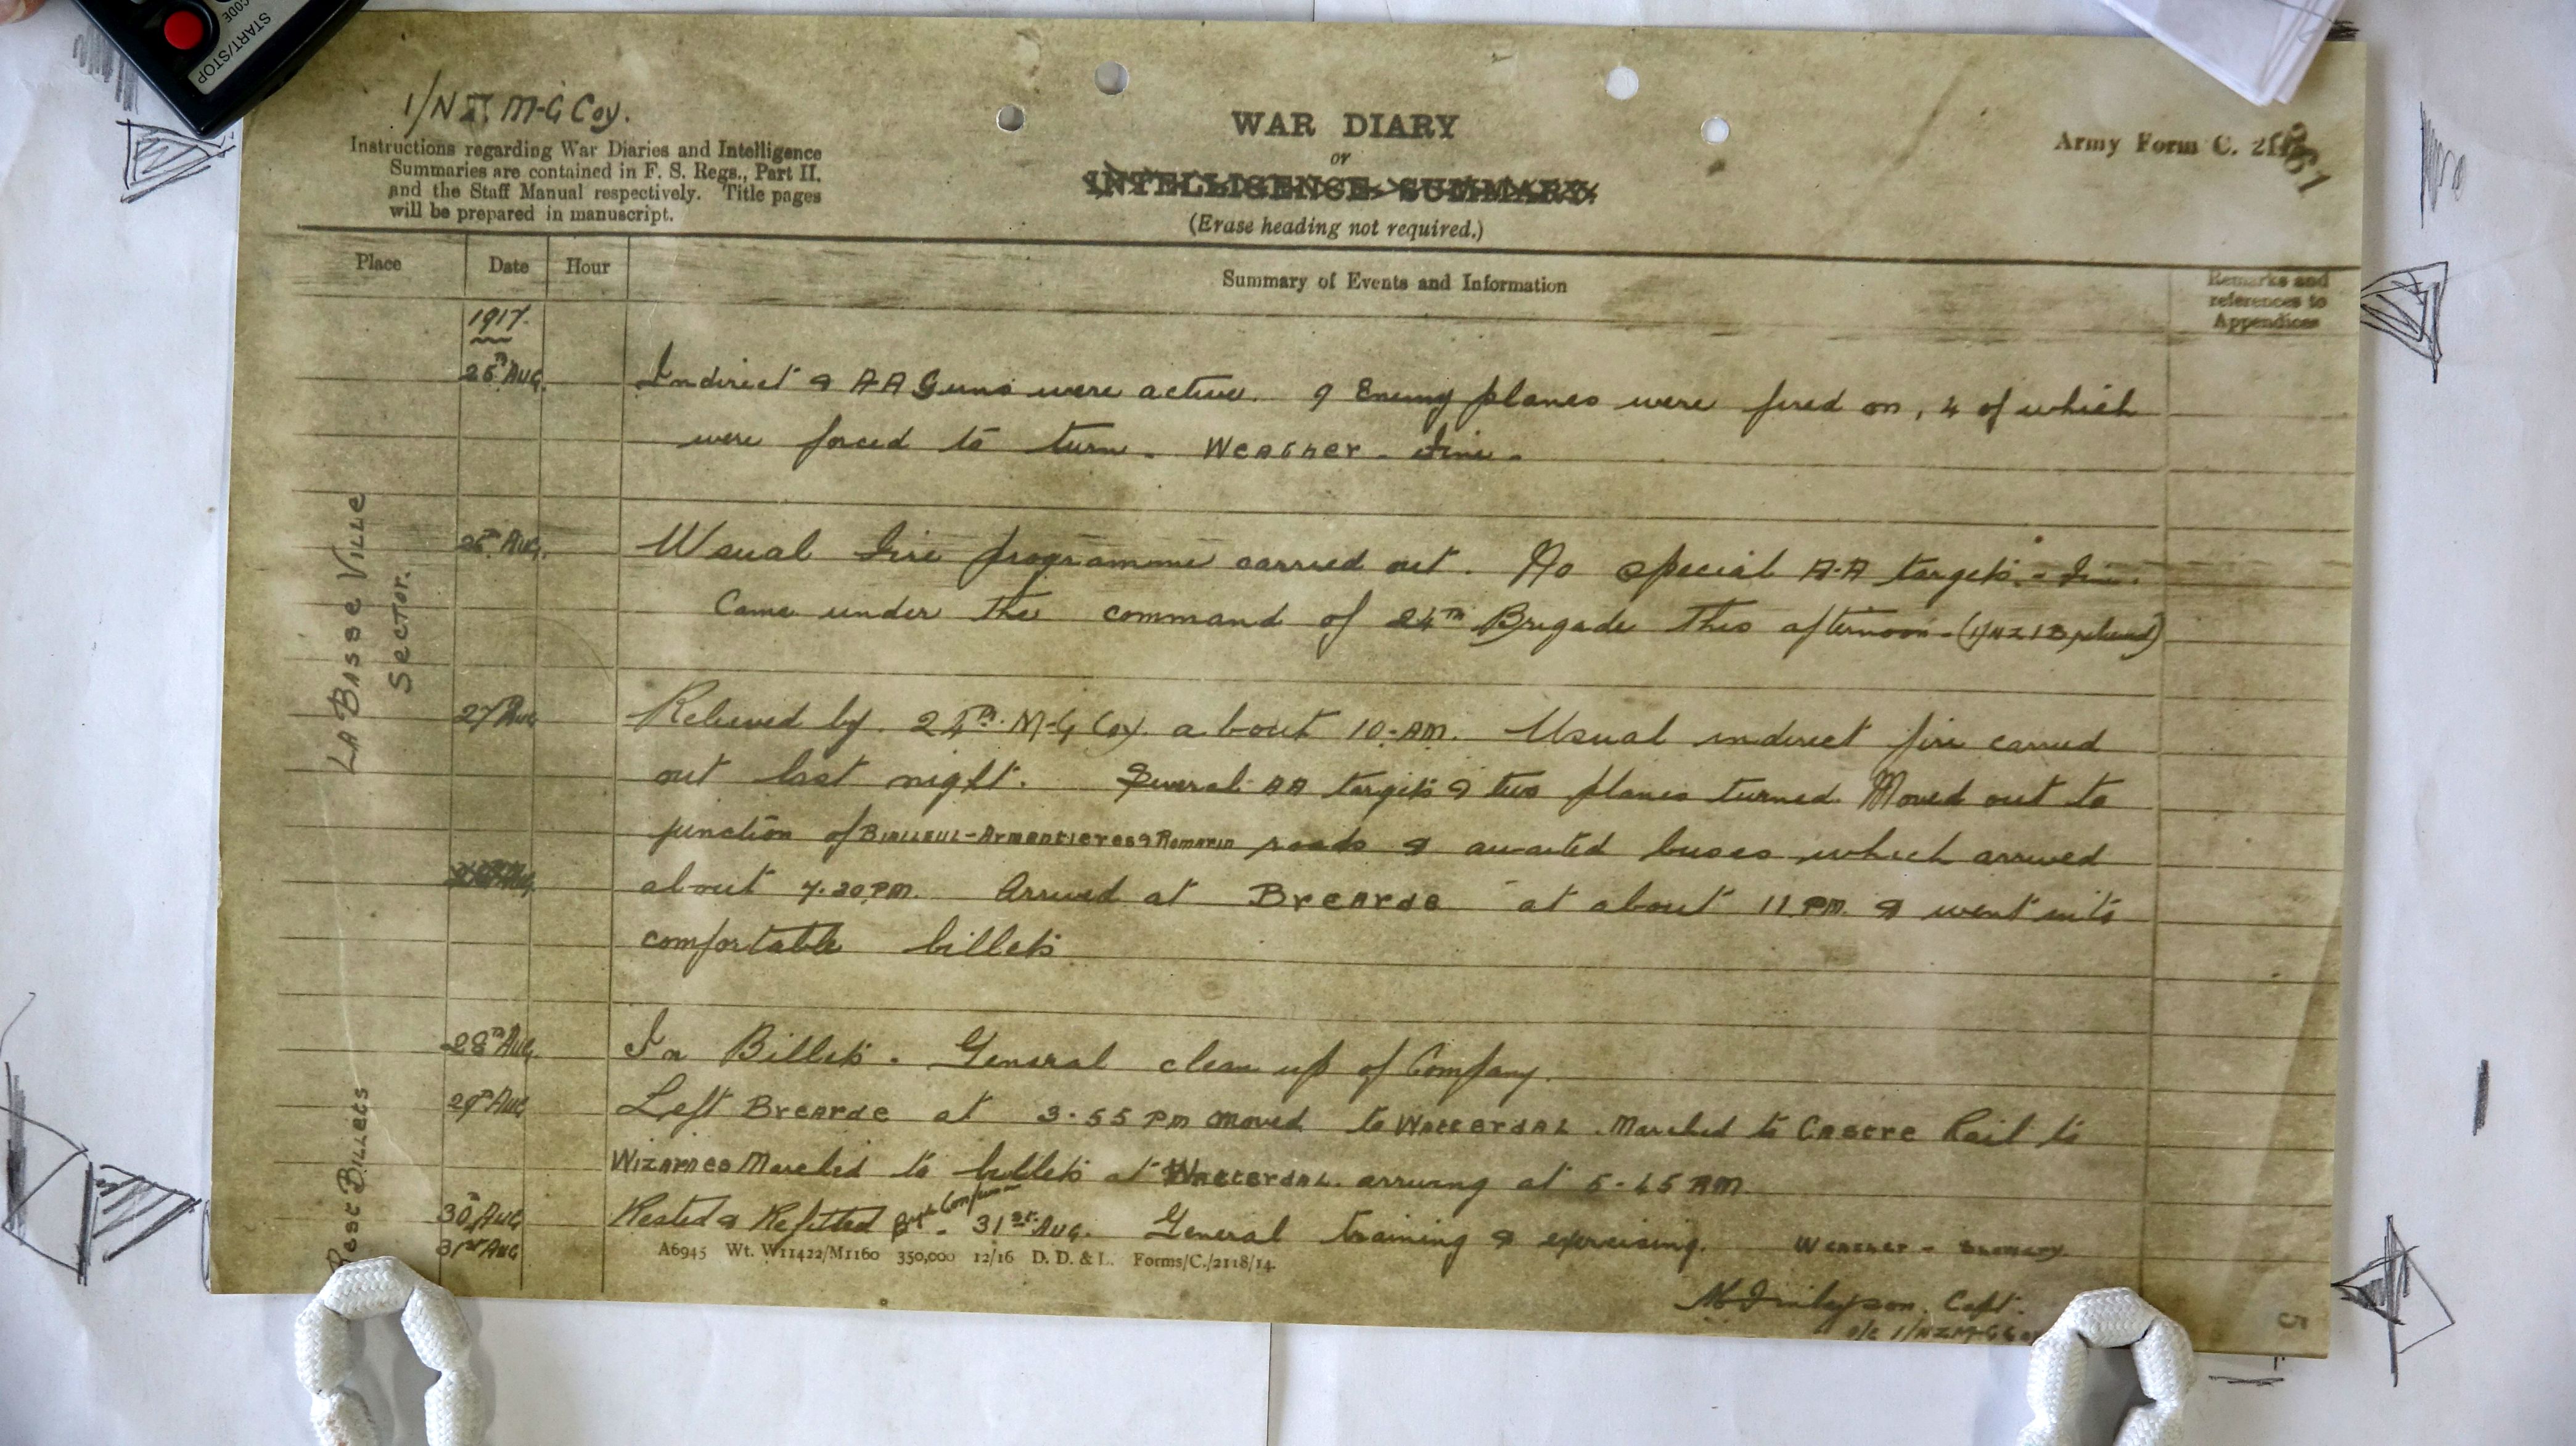 START/STOP
CODE
1/NZ M-G Coy.
Instructions regarding War Diaries and Intelligence
Summaries are contained in F. S. Regs., Part II.
and the Staff Manual respectively. Title pages
will be prepared in manuscript.
WAR DIARY
or
INTELLIGENCE SUMMARY.
(Erase heading not required.)
Army Form C.
Place Date Hour Summary of Events and Information Remarks and references to Appendices
LA BASSE VILLE
SECTOR.
1917.
25th AUG. Indirect & AA Guns were active. 9 Enemy planes were fired on, 4 of which
were forced to turn. Weather - Fine -
26th AUG. Usual fire programme carried out. No special A-A targets. - Fine.
Came under the command of 24th Brigade this afternoon - (1/NZ I B relieved)
27th Aug Relieved by 24th M-G Coy. about 10-AM. Usual indirect fire carried
out last night. Several AA targets & two planes turned. Moved out to
junction of Bailleul-Armentieres & Romarin roads & awaited buses which arrived
about 7.30 PM. Arrived at Brearde at about 11 PM. & went into
comfortable billets
Rest Billets
28th Aug. In Billets. General clean up of Company.
29th Aug Left Brearde at 3-55 PM moved to Watterdal. Marched to Caestre Rail to
Wizernes Marched to billets at Watterdal. arriving at 5-45 AM.
30th Aug Rested & Refitted - 31st Aug. General training & exercising. Weather - Showery
31st Aug
A6945 Wt. W11422/M1160 350,000 12/16 D. D. & L. Forms/C./2118/14.
Finlayson. Capt.
o/c 1/NZ M-G Coy
5